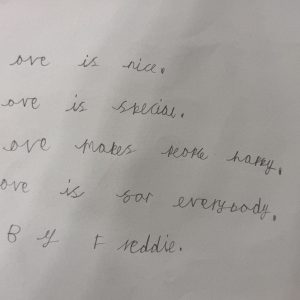 ove is nice.
ove is special.
ove makes people happy.
ove is for everybody.
By Freddie.